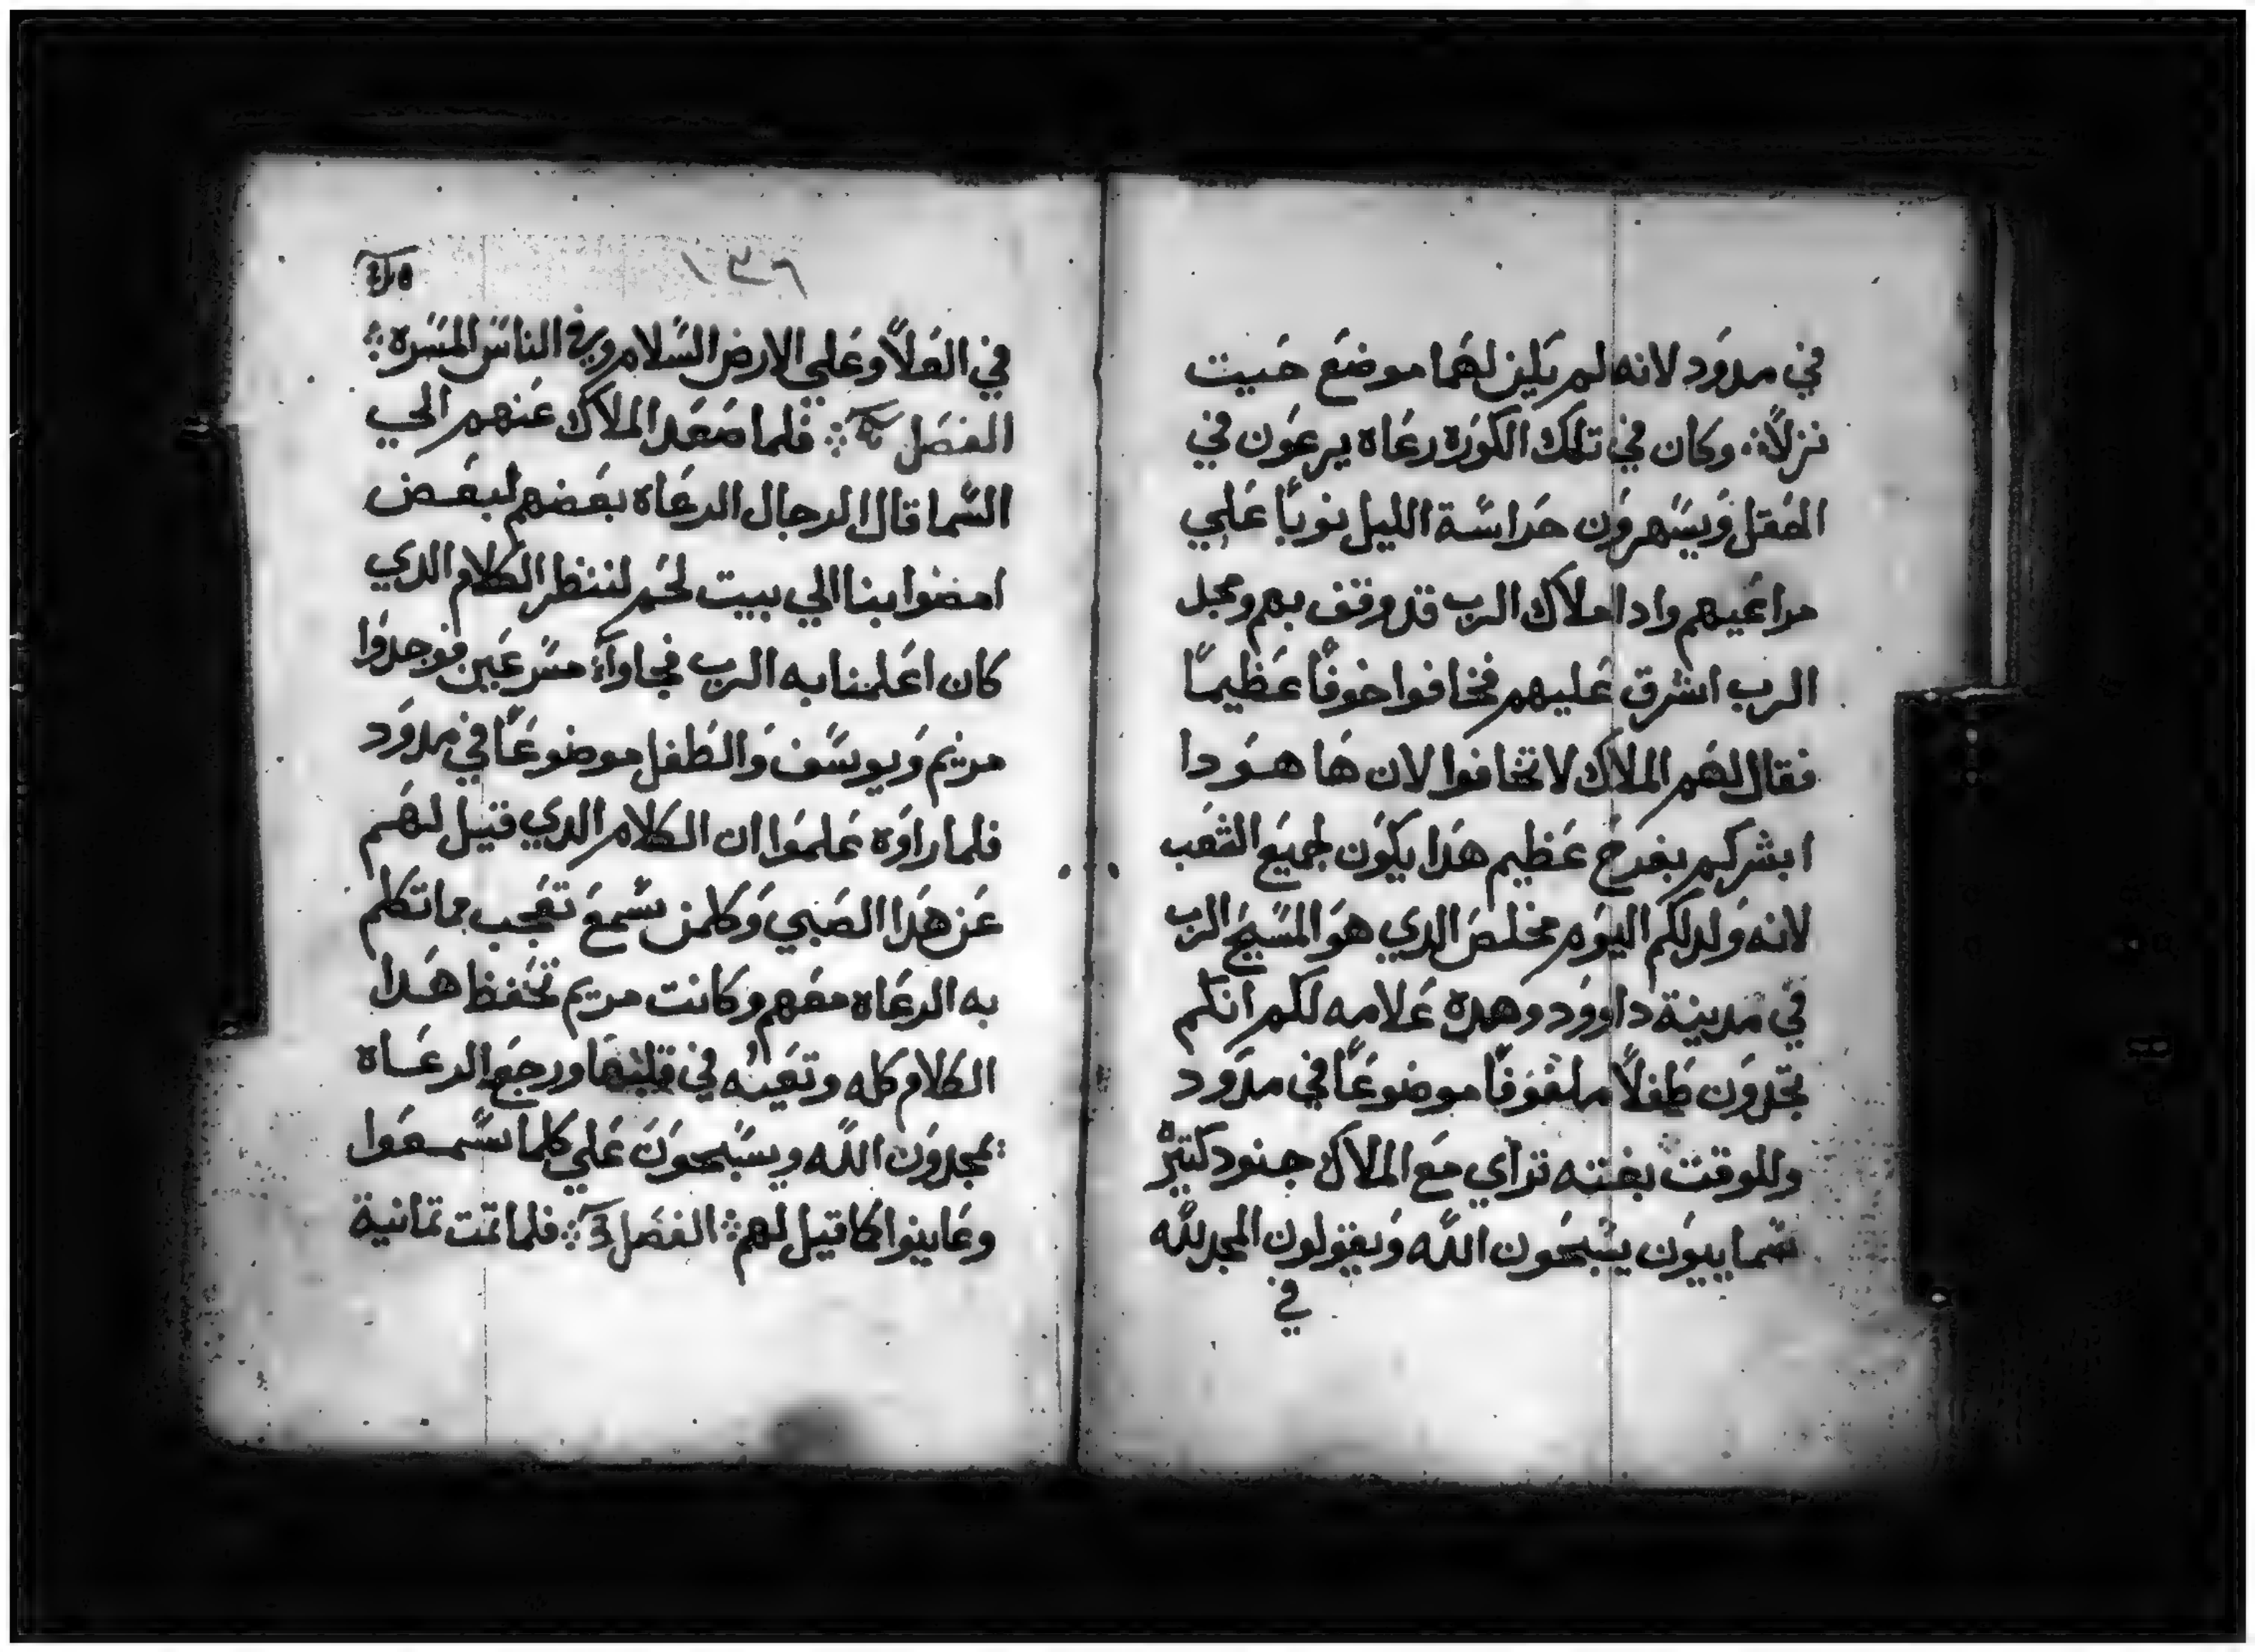 في مدود لانه لم يكن لهما موضع حيت
نزلا ؞ وكان في تلك الكوره رعاه يرعون في
الحقل ويسهرون حراسة الليل نوبا علي
مراعيهم وادا ملاك الرب قد وقف بهم ومجد
الرب اشرق عليهم فخافوا خوفا عظيما
فقال لهم الملاك لا تخافوا لان ها هودا
ابشركم بفرح عظيم هدا يكون لجميع الشعب
لانه ولد لكم اليوم مخلص الدي هو المسيح الرب
في مدينة داوود وهده علامه لكم انكم
تجدون طفلا ملفوفا موضوعا في مدود
وللوقت بغته تراي مع الملاك جنود كتيره
سماييون يسبحون الله ويقولون المجد لله
في
في العلا وعلي الارض السلام وفي الناس المسره ؞
الفصل ؞ فلما صعد الملاك عنهم الي
السما قال الرجال الرعاه بعضهم لبعض
امضوا بنا الي بيت لحم لننظر الكلام الدي
كان اعلمنا به الرب فجاوا مسرعين فوجدوا
مريم ويوسف والطفل موضوعا في مدود
فلما راوه علموا ان الكلام الدي قيل لهم
عن هدا الصبي وكلمن سمع تعجب مما تكلم
به الرعاه معهم وكانت مريم تحفظ هدا
الكلام كله وتعيه في قلبها ورجع الرعاه
يمجدون الله ويسبحون علي كلما سمعوا
وعاينوا كما قيل لهم ؞ الفصل ؞ فلما تمت تمانية